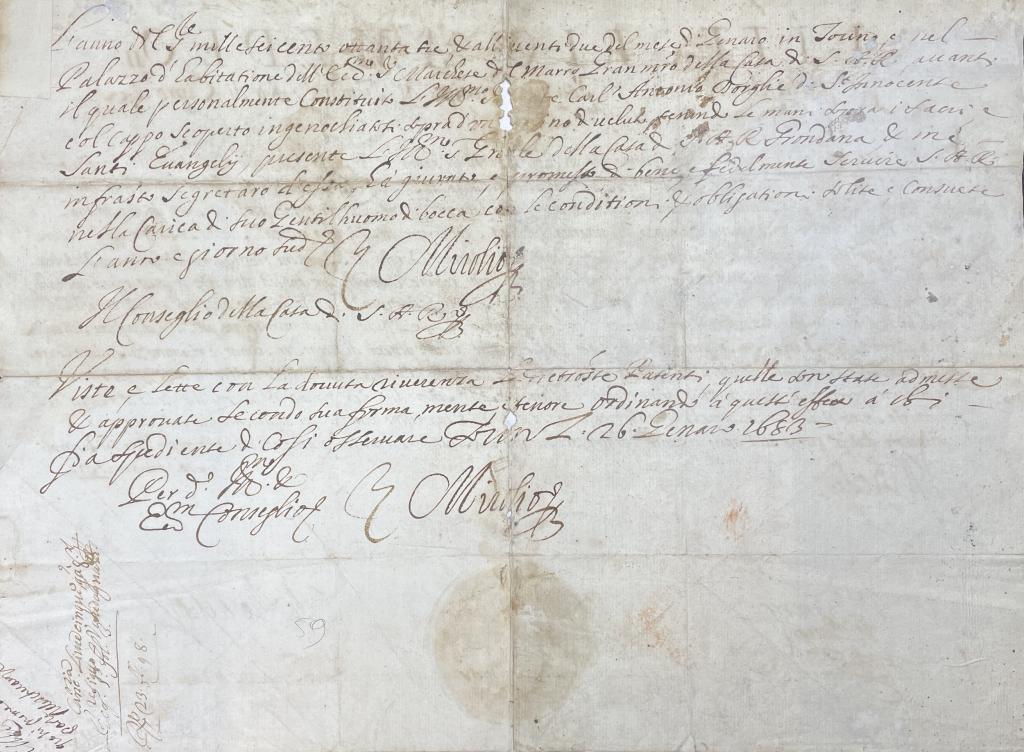 L'anno del S.re mille seicento ottanta tre & alli venti due del mese di Genaro in Torino e nel
Palazzo d'habitatione dell'Ecc.mo S.r Marchese del Marro Gran m.ro della Casa di S. A. R. avanti
il quale personalmente Constituito L'Ill.mo Carl' Antonio Dorghè di S.t Innocente
col Cappo scoperto ingenochiatosi sopra d'un di veluto tenendo le mani sopra i sacri e
Santi Euangelij, presente L'Ill.mo S.r della Casa di S. A. R. Grondana & me
infras.to segretaro d'essa, ha giurato, e promesso di bene, e fedelmente servire S. A. R.
nella Carica di suo Gentilhuomo di bocca con le conditioni, & obligationi solite e consuete
L'anno e giorno sud.i Mirolio
Il Conseglio della Casa di S. A. R.
Viste e lette con la dovuta riverenza le retroste Patenti, quelle son state admesse
& approvate secondo sua forma, mente e tenore ordinando à quest' effeto a chi
sia spediente di cosi osservare Torino Li 26. Genaro 1683
Per d.o Ill.mo &
Ecc.mo Conseglio Mirolio
59